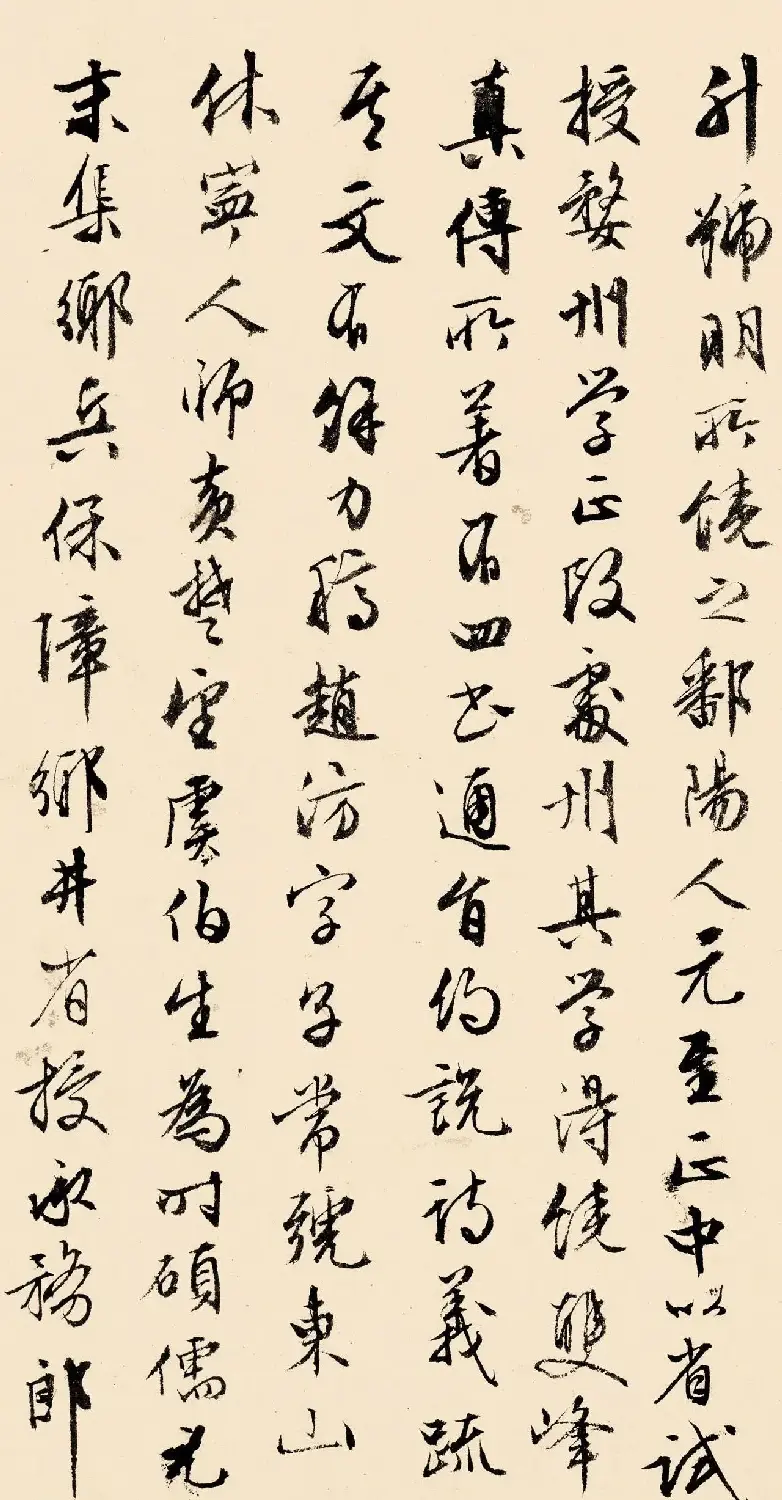 升號明所饒之鄱陽人元至正中以省試
授婺州学正改處州其学得饒雙峰
真傳所著有四书通旨約說詩義疏
其文有餘力稿趙汸字子常號東山
休寧人師黃楚望虞伯生為時碩儒元
末集鄉兵保障鄉井省授承務郎